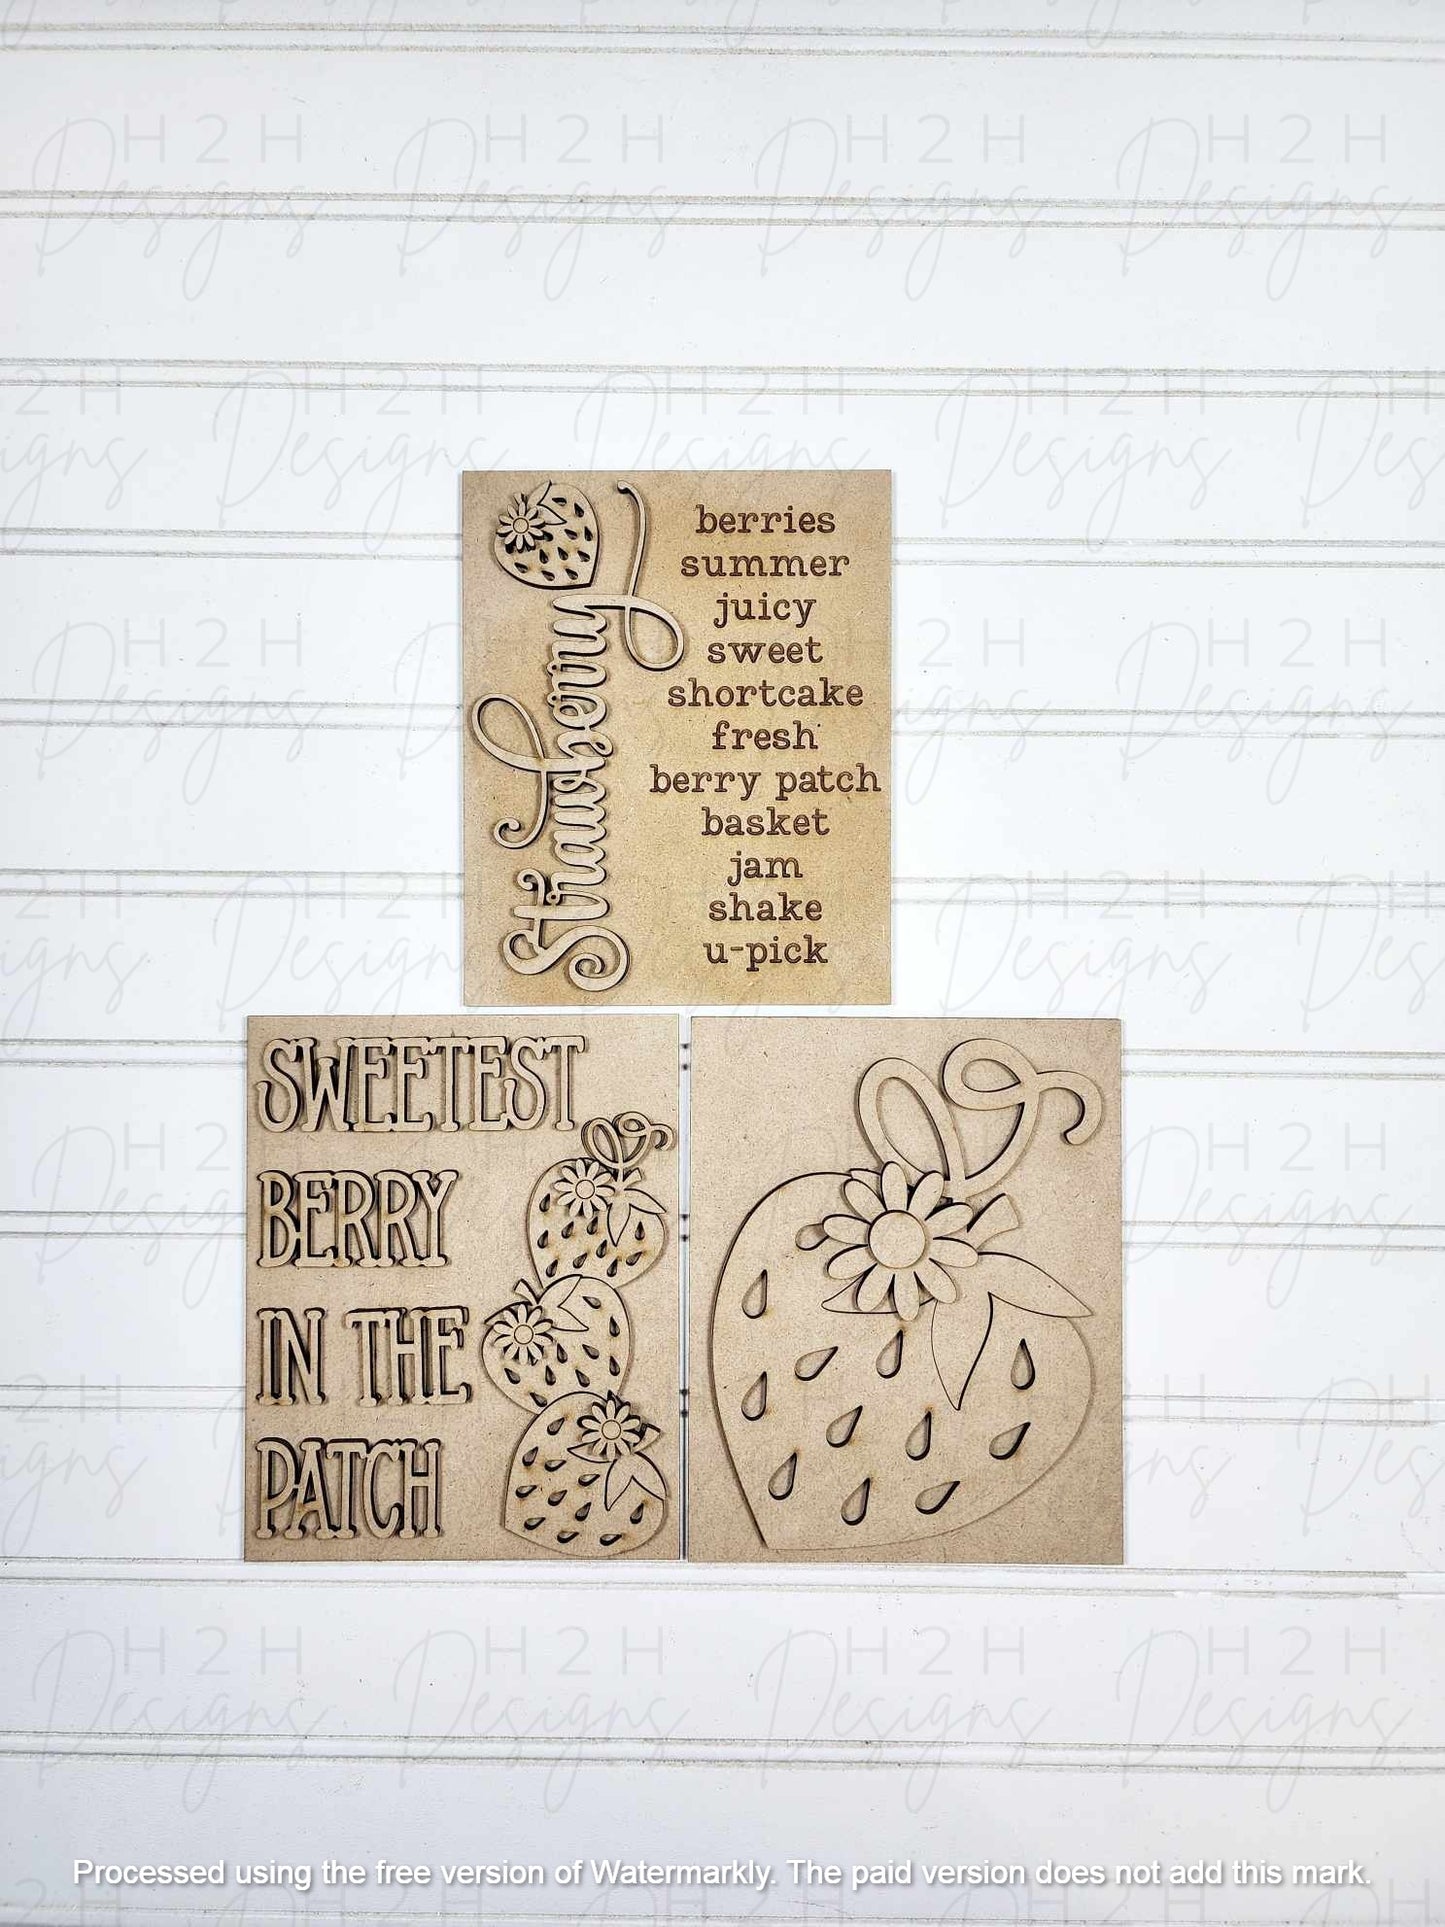 Strawberry
berries
summer
juicy
sweet
shortcake
fresh
berry patch
basket
jam
shake
u-pick
SWEETEST
BERRY
IN THE
PATCH
H2H
Designs
Processed using the free version of Watermarkly. The paid version does not add this mark.